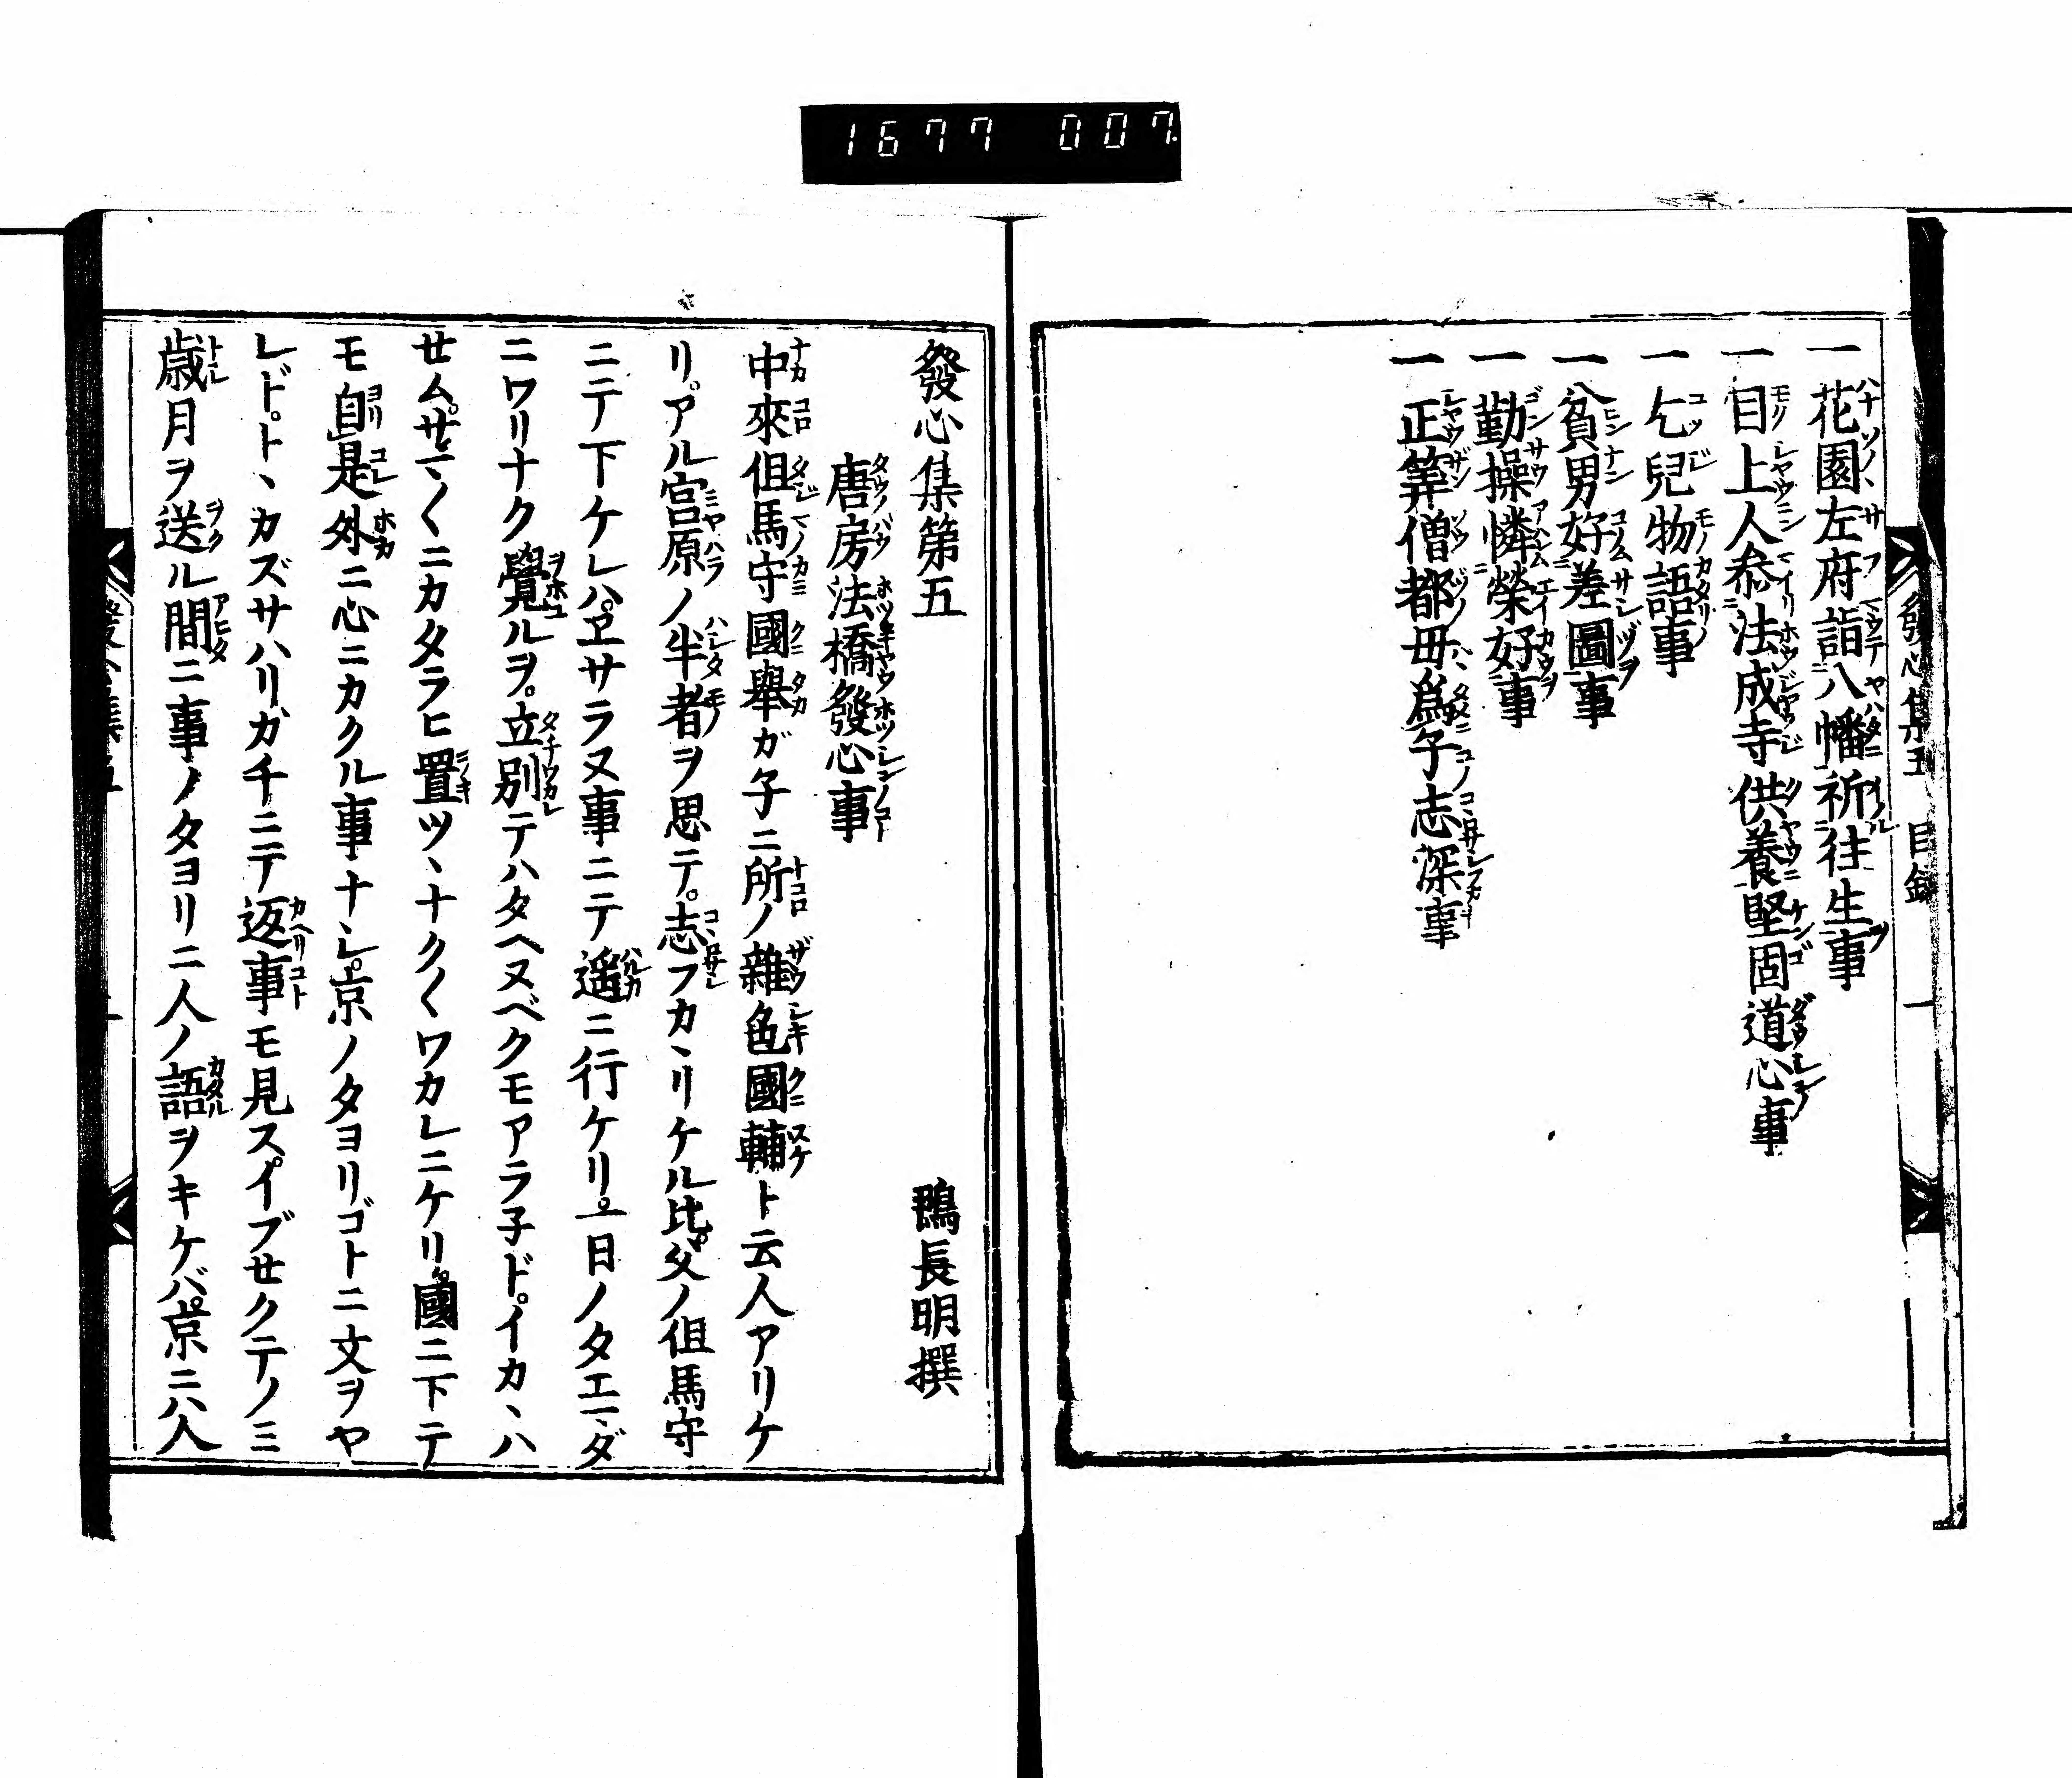 1677 007.
一花園左府詣八幡祈往生事
一目上人叅法成寺供養堅固道心事
一乞兒物語事
一貧男好差圖事
一勤操憐榮好事
一正筭僧都母爲子志深事
發心集第五 鴨長明撰
唐房法橋發心事
中來但馬守國擧ガ子ニ所ノ雜色國輔ト云人アリケ
リ。アル宮原ノ半者ヲ思テ。志フカヽリケル比。父ノ但馬守
ニテ下ケレハ。ヱサラヌ事ニテ遥ニ行ケリ。一日ノタエマダ
ニワリナク覺ルヲ。立別テハタヘヌベクモアラ子ド。イカヽハ
せム。サマ〲ニカタラヒ置ツヽナク〱ワカレニケリ。國ニ下テ
モ自是外ニ心ニカクル事ナシ。京ノタヨリゴトニ文ヲヤ
レド。トヽカズサハリガチニテ返事モ見ス。イブせクテノミ
歳月ヲ送ル間ニ事ノタヨリニ人ノ語ヲキケバ。京ニハ人
發心集五 目錄 一